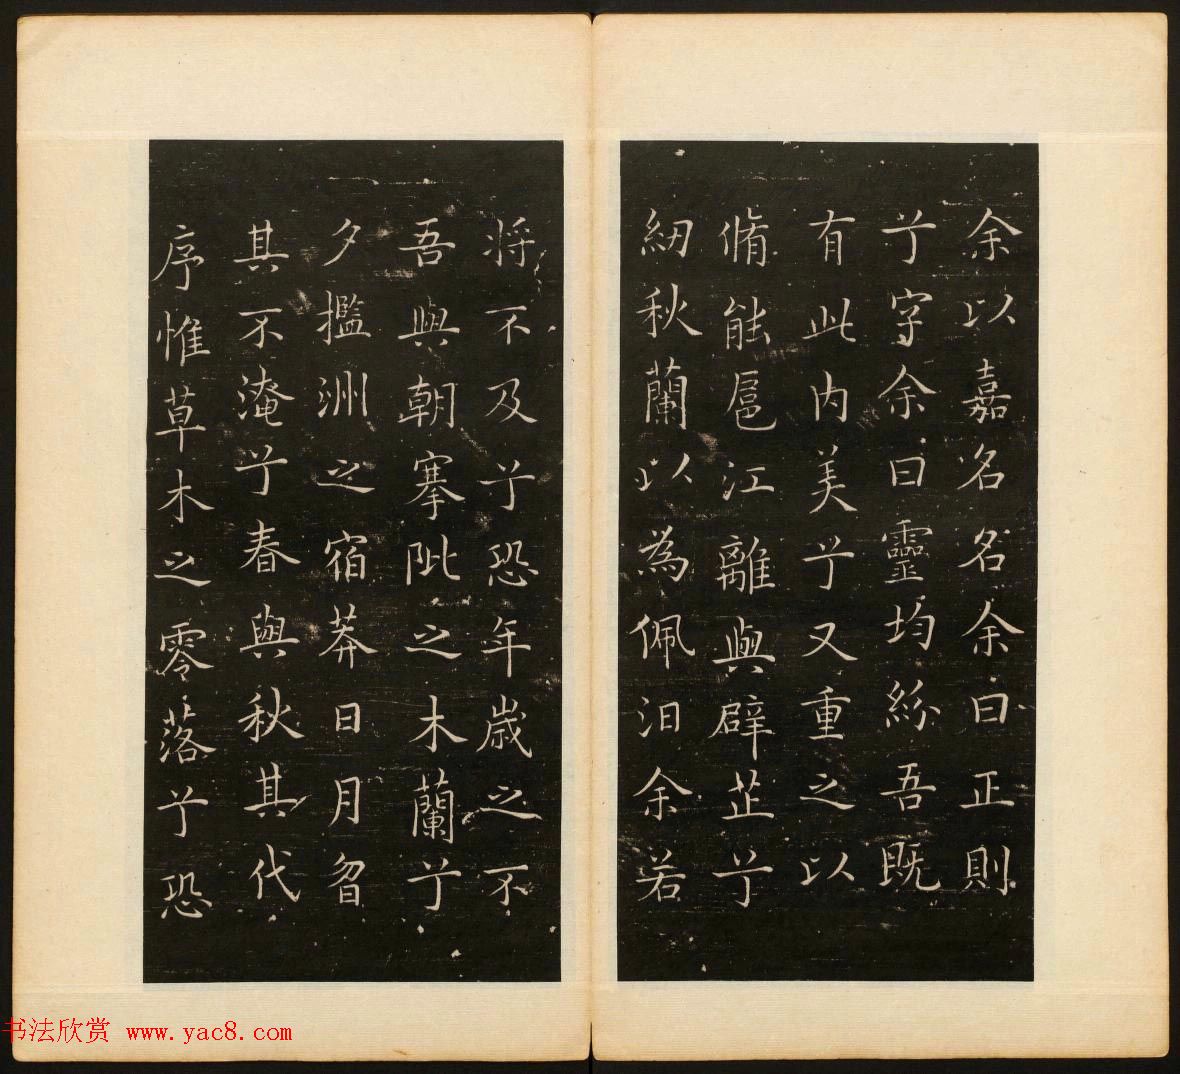 余以嘉名名余曰正則
兮字余曰靈均紛吾既
有此內美兮又重之以
脩能扈江離與辟芷兮
紉秋蘭以為佩汩余若
將不及兮恐年歲之不
吾與朝搴阰之木蘭兮
夕擥洲之宿莽日月曶
其不淹兮春與秋其代
序惟草木之零落兮恐
书法欣赏 www.yac8.com